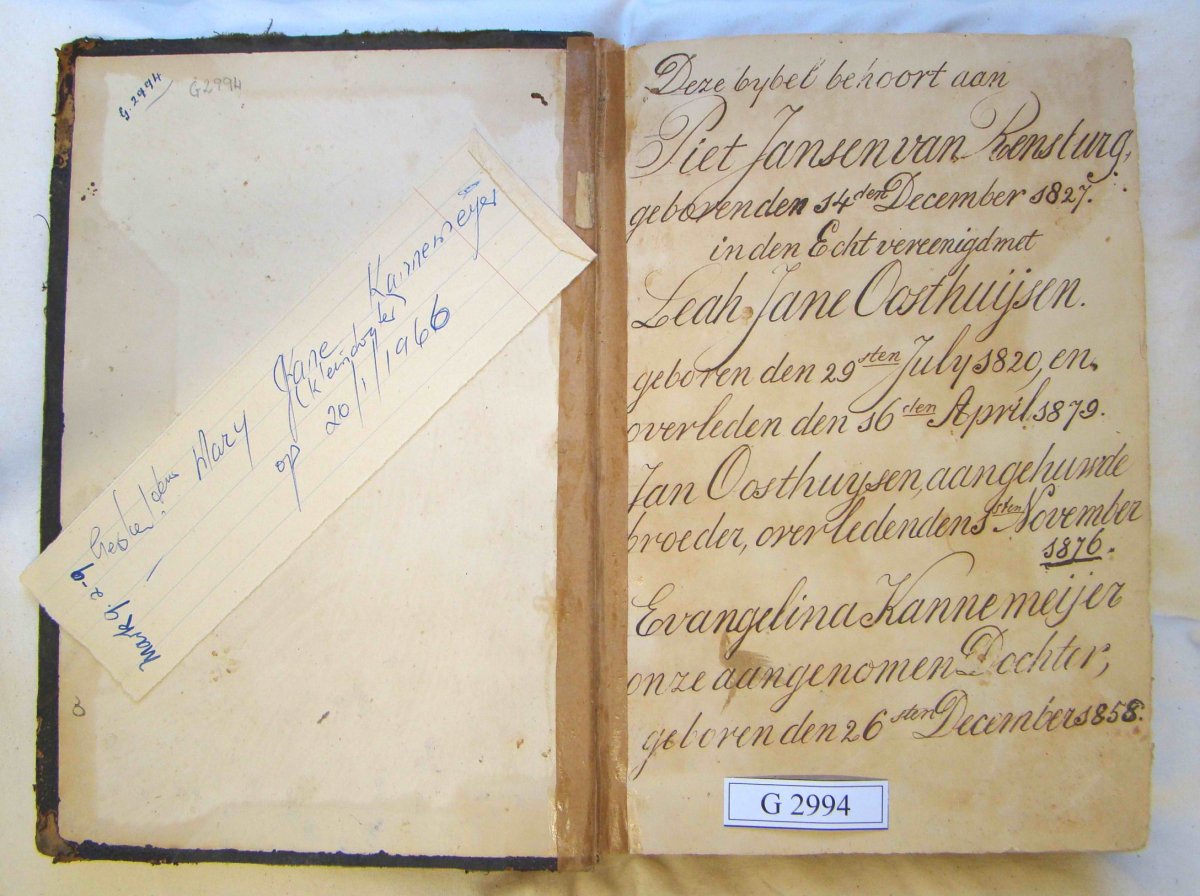 G.2994
G2994
Mary Jane Kannemeyer
(kleindogter)
op 20/1/1966
Mark 9.2-9
Deze bybel behoort aan
Piet Jansen van Rensburg,
geboren den 14den December 1827.
in den Echt vereenigd met
Leah Jane Oosthuijsen.
geboren den 29sten July 1820, en
overleden den 16den April 1879.
Jan Oosthuysen, aangehuwde
broeder, overleden den 1sten November
1876.
Evangelina Kannemeijer
onze aangenomen Dochter,
geboren den 26sten December 1858.
G 2994